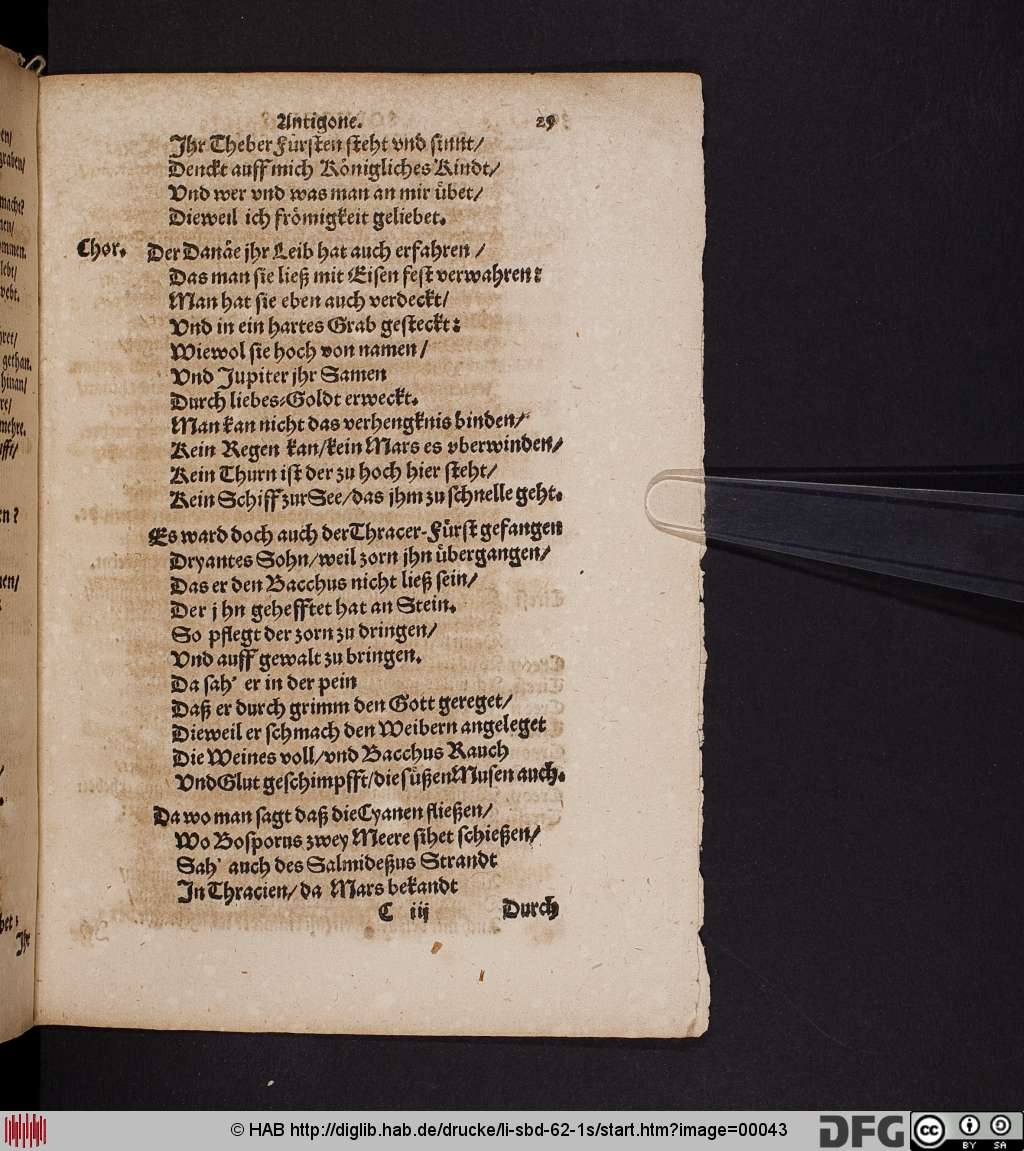 Antigone. 29
Jhr Theber Fürsten steht vnd sinnt/
Denckt auff mich Königliches Kindt/
Vnd wer vnd was man an mir übet/
Dieweil ich frömigkeit geliebet.
Chor. Der Danåe jhr Leib hat auch erfahren /
Das man sie ließ mit Eisen fest verwahren:
Man hat sie eben auch verdeckt/
Vnd in ein hartes Grab gesteckt:
Wiewol sie hoch von namen/
Vnd Jupiter jhr Samen
Durch liebes-Goldt erweckt.
Man kan nicht das verhengknis binden/
Kein Regen kan/kein Mars es vberwinden/
Kein Thurn ist der zu hoch hier steht/
Kein Schiff zur See/das jhm zu schnelle geht.
Es ward doch auch der Thracer-Fürst gefangen
Dryantes Sohn/weil zorn jhn übergangen/
Das er den Bacchus nicht ließ sein/
Der jhn gehefftet hat an Stein.
So pflegt der zorn zu dringen/
Vnd auff gewalt zu bringen.
Da sah' er in der pein
Daß er durch grimm den Gott gereget/
Dieweil er schmach den Weibern angeleget
Die Weines voll/vnd Bacchus Rauch
Vnd Glut geschimpfft/die süßen Musen auch.
Da wo man sagt daß die Cyanen fließen/
Wo Bosporus zwey Meere sihet schießen/
Sah' auch des Salmideßus Strandt
In Thracien/da Mars bekandt
C iij Durch
© HAB http://diglib.hab.de/drucke/li-sbd-62-1s/start.htm?image=00043
DFG
cc BY SA